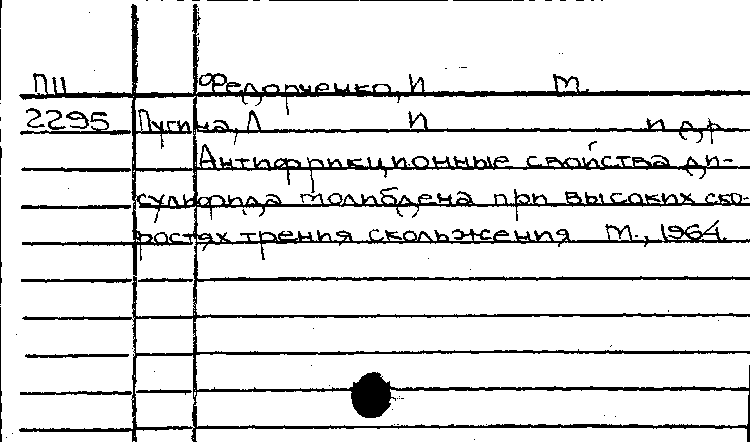 П11 Федорченко, И М.
2295 Пугина, Л И и др
Антифрикционные свойства ди-
сульфида молибдена при высоких ско-
ростях трения скольжения М., 1964.